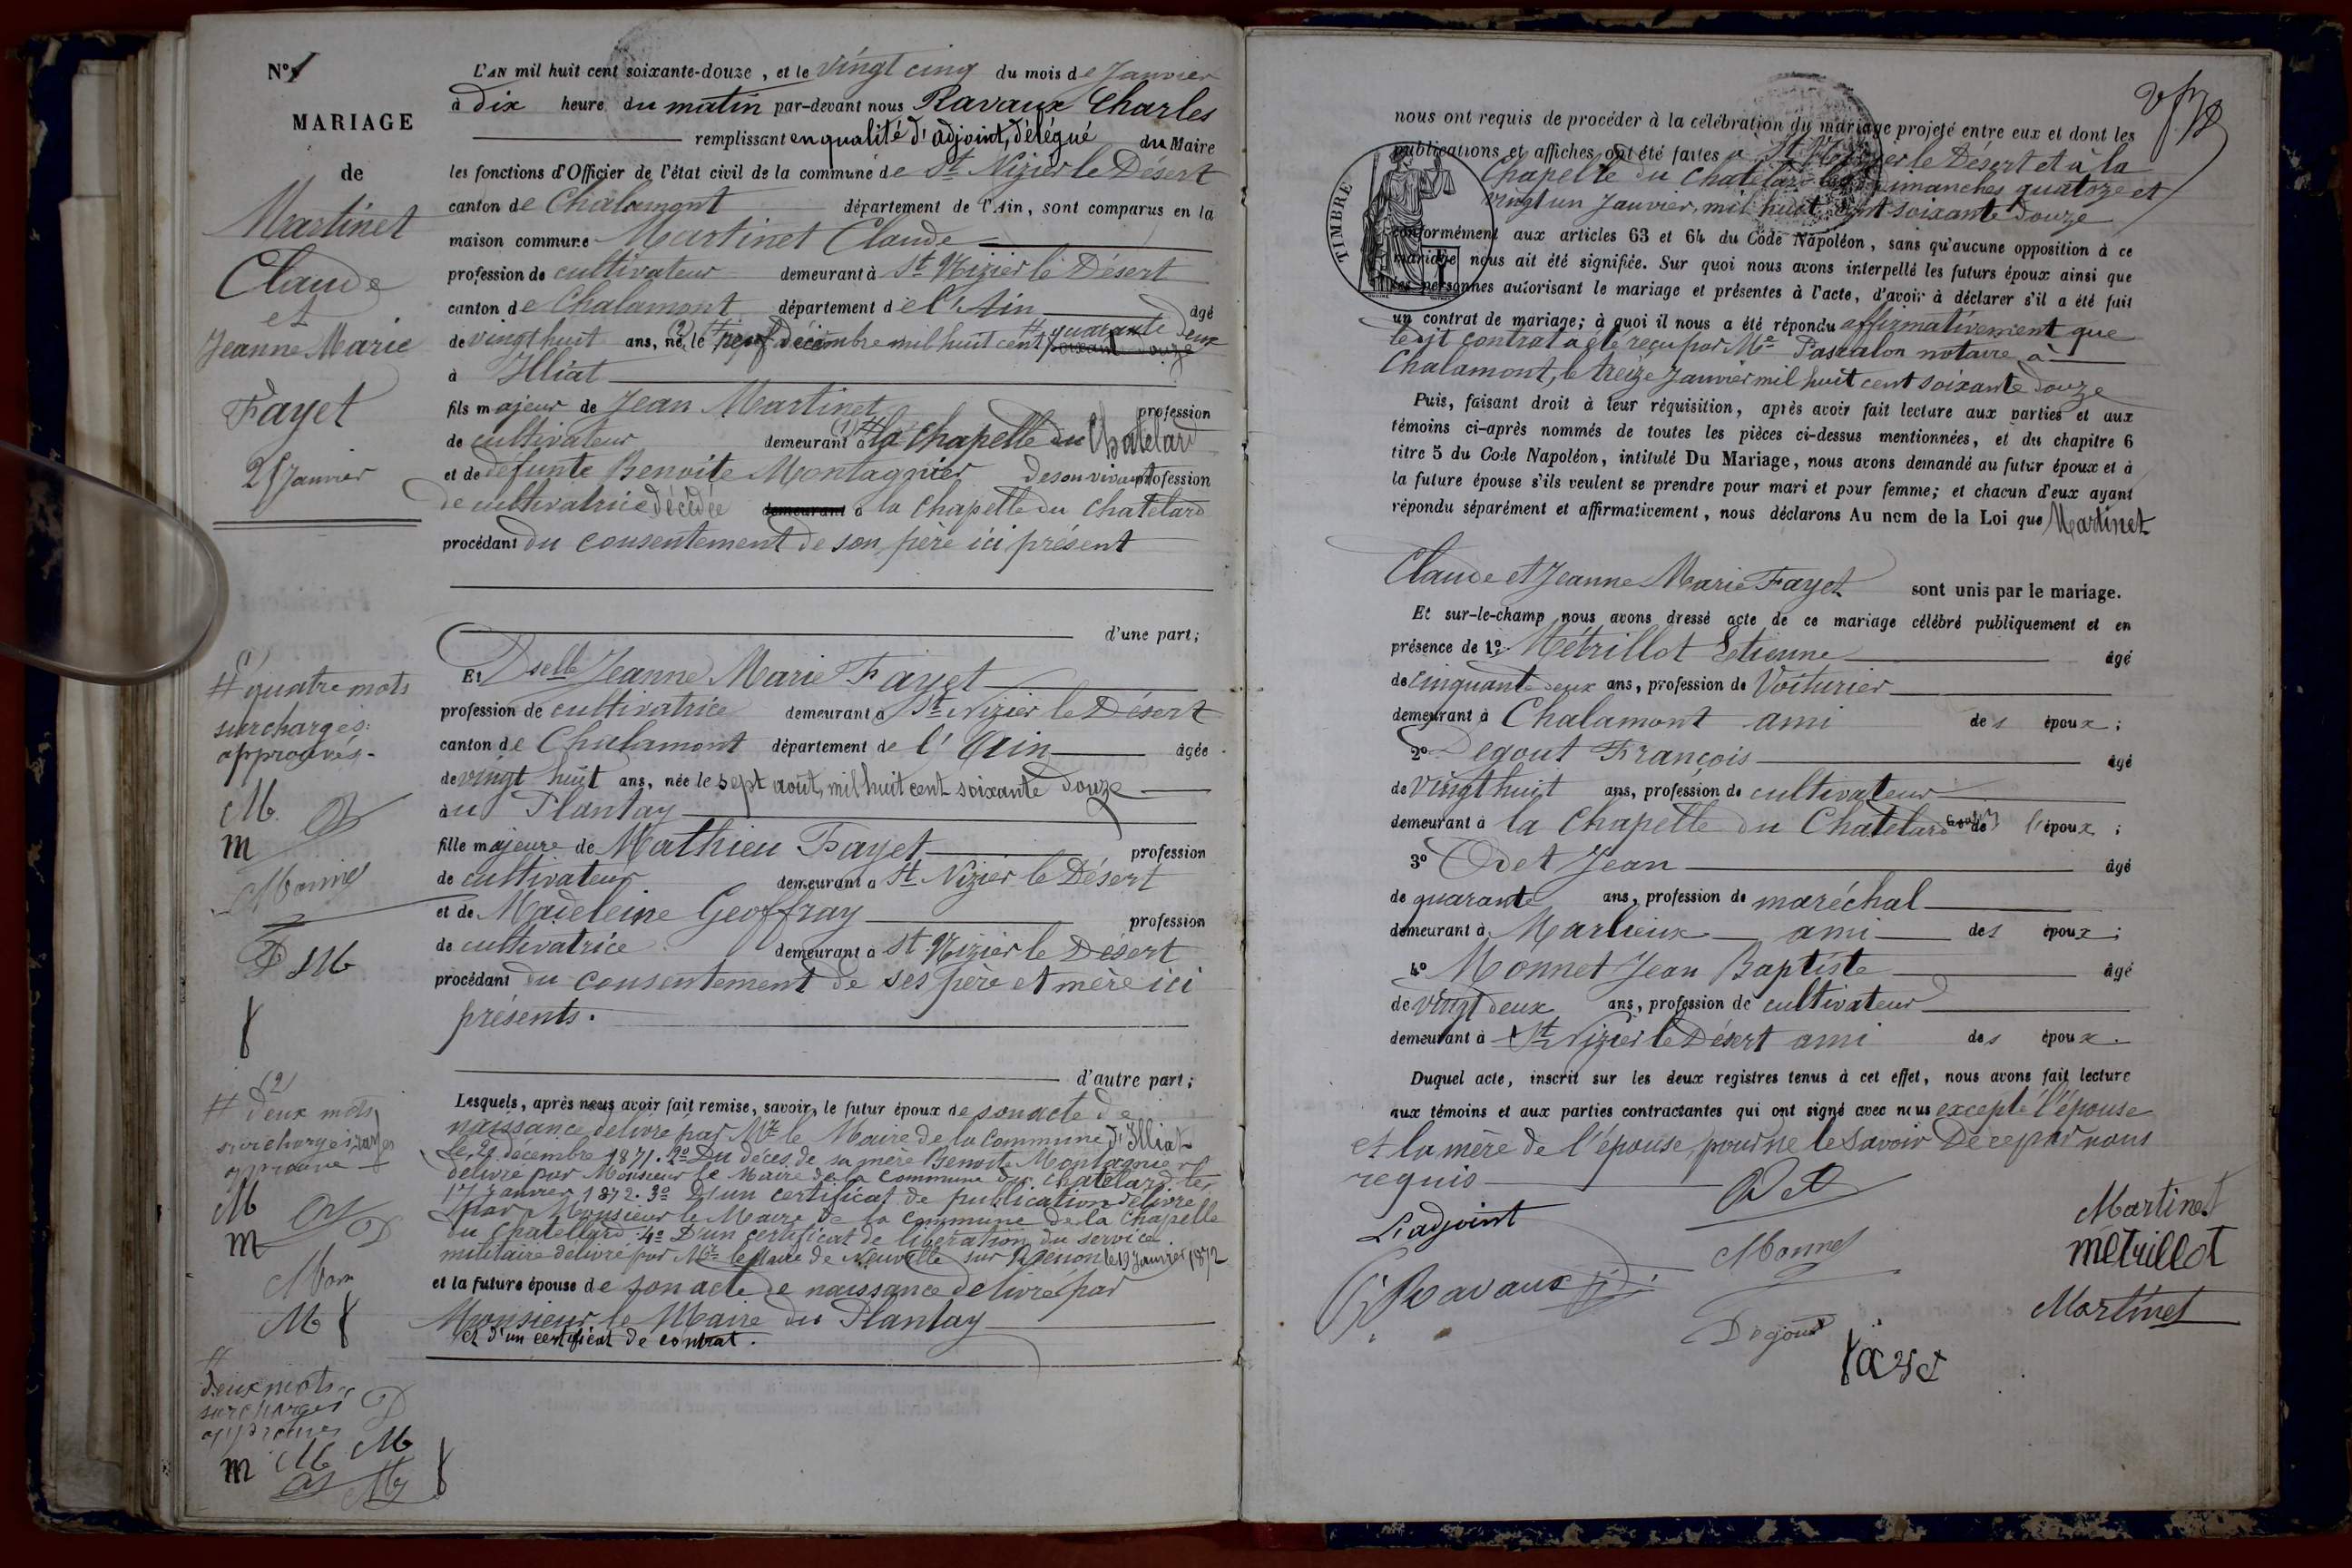 N° 1
MARIAGE
de
Martinet
Claude
et
Jeanne Marie
Fayet
25 Janvier
L'AN mil huit cent soixante-douze, et le vingt cinq du mois de Janvier
à dix heure du matin par-devant nous Ravaux Charles
remplissant en qualité d'adjoint, délégué du Maire
les fonctions d'Officier de l'état civil de la commune de St Nizier le Désert
canton de Chalamont département de l'Ain, sont comparus en la
maison commune Martinet Claude
profession de cultivateur demeurant à St Nizier le Désert
canton de Chalamont département de l'Ain âgé
de vingt huit ans, né le (2) # neuf Décembre mil huit cent # quarante deux
soixante douze
à Illiat
fils majeur de Jean Martinet profession
de cultivateur demeurant à (1) # la Chapelle du Chatelard
et de défunte Benoite Montagnier de son vivant profession
de cultivatrice décédée demeurant à la Chapelle du Chatelard
procédant du consentement de son père ici présent
d'une part;
Et Dselle Jeanne Marie Fayet
profession de cultivatrice demeurant à St Nizier le Désert
canton de Chalamont département de l'Ain âgée
de vingt huit ans, née le sept août, mil huit cent soixante douze
au Plantay
fille majeure de Mathieu Fayet profession
de cultivateur demeurant à St Nizier le Désert
et de Madeleine Geoffray profession
de cultivatrice demeurant à St Nizier le Désert
procédant du consentement de ses père et mère ici
présents.
d'autre part;
Lesquels, après nous avoir fait remise, savoir, le futur époux de son acte de
naissance délivré par Mr le Maire de la Commune d'Illiat
le 27 décembre 1871. 2° Du décès de sa mère Benoite Montagnier
délivré par Monsieur le Maire de la Commune du Chatelard le
17 Janvier 1872. 3° D'un certificat de publication délivré
par Monsieur le Maire de la Commune de la Chapelle
du Chatellard 4° D'un certificat de libération du service
militaire délivré par Mr le Maire de Neuville sur Renon le 19 Janvier 1872
et la future épouse de son acte de naissance délivré par
Monsieur le Maire du Plantay
et d'un certificat de contrat.
(1)
# quatre mots
surchargés
approuvés
M.
m
Monnet
D M
(2)
# deux mots
surchargés
approuvé
M
m
D
Mon
M
#
deux mots
surchargés
approuvés
m M M
nous ont requis de procéder à la célébration du mariage projeté entre eux et dont les
publications et affiches ont été faites à St Nizier le Désert et à la
Chapelle du Chatelard les dimanches quatorze et
vingt un Janvier, mil huit cent soixante douze
TIMBRE
conformément aux articles 63 et 64 du Code Napoléon, sans qu'aucune opposition à ce
mariage nous ait été signifiée. Sur quoi nous avons interpellé les futurs époux ainsi que
les personnes autorisant le mariage et présentes à l'acte, d'avoir à déclarer s'il a été fait
un contrat de mariage; à quoi il nous a été répondu affirmativement que
le dit contrat a été reçu par Me Pascalon notaire à
Chalamont, le treize Janvier mil huit cent soixante douze
Puis, faisant droit à leur réquisition, après avoir fait lecture aux parties et aux
témoins ci-après nommés de toutes les pièces ci-dessus mentionnées, et du chapitre 6
titre 5 du Code Napoléon, intitulé Du Mariage, nous avons demandé au futur époux et à
la future épouse s'ils veulent se prendre pour mari et pour femme; et chacun d'eux ayant
répondu séparément et affirmativement, nous déclarons Au nom de la Loi que Martinet
Claude et Jeanne Marie Fayet sont unis par le mariage.
Et sur-le-champ nous avons dressé acte de ce mariage célébré publiquement et en
présence de 1° Métrillot Etienne âgé
de cinquante deux ans, profession de Voiturier
demeurant à Chalamont ami des époux;
2° Degout François âgé
de vingt huit ans, profession de cultivateur
demeurant à la Chapelle du Chatelard cousin de l'époux;
3° Odet Jean âgé
de quarante ans, profession de maréchal
demeurant à Marlieux ami des époux;
4° Monnet Jean Baptiste âgé
de vingt deux ans, profession de cultivateur
demeurant à St Nizier le Désert ami des époux.
Duquel acte, inscrit sur les deux registres tenus à cet effet, nous avons fait lecture
aux témoins et aux parties contractantes qui ont signé avec nous excepté l'épouse
et la mère de l'épouse, pour ne le savoir De ce par nous
requis
L'adjoint
Ravaux
Odet
Monnet
Degout
Martinet
métrillot
Martinet